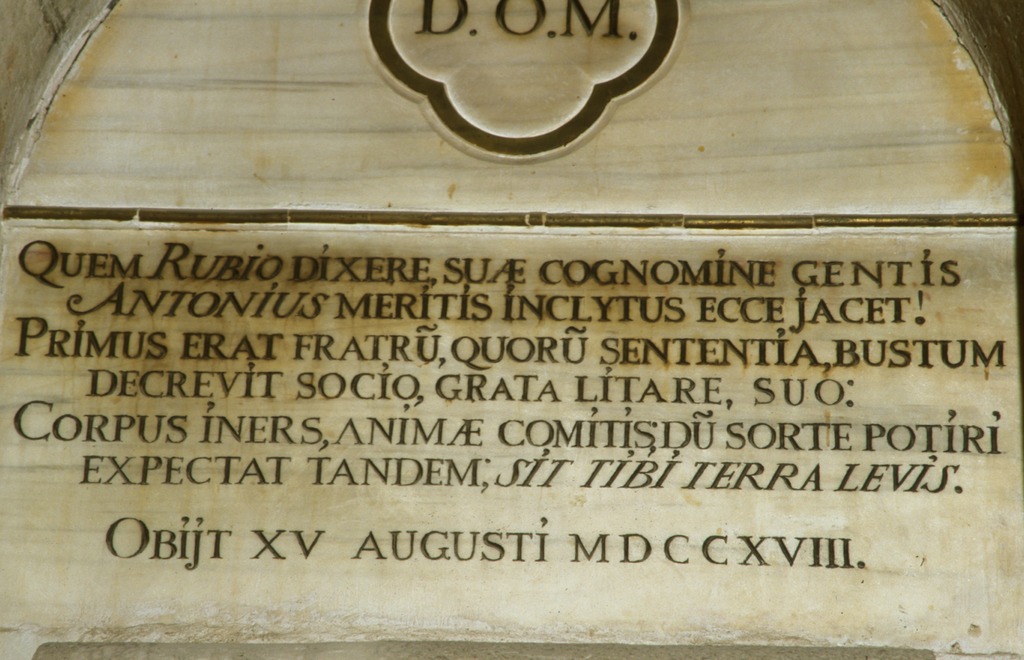 D.O.M.
QUEM RUBIO DIXERE, SUÆ COGNOMINE GENTIS
ANTONIUS MERITIS INCLYTUS ECCE JACET!
PRIMUS ERAT FRATRŨ, QUORŨ SENTENTIA, BUSTUM
DECREVIT SOCIO, GRATA LITARE, SUO:
CORPUS INERS, ANIMÆ COMITIS; DŨ SORTE POTIRI
EXPECTAT TANDEM; SIT TIBI TERRA LEVIS.
OBIJT XV AUGUSTI MDCCXVIII.